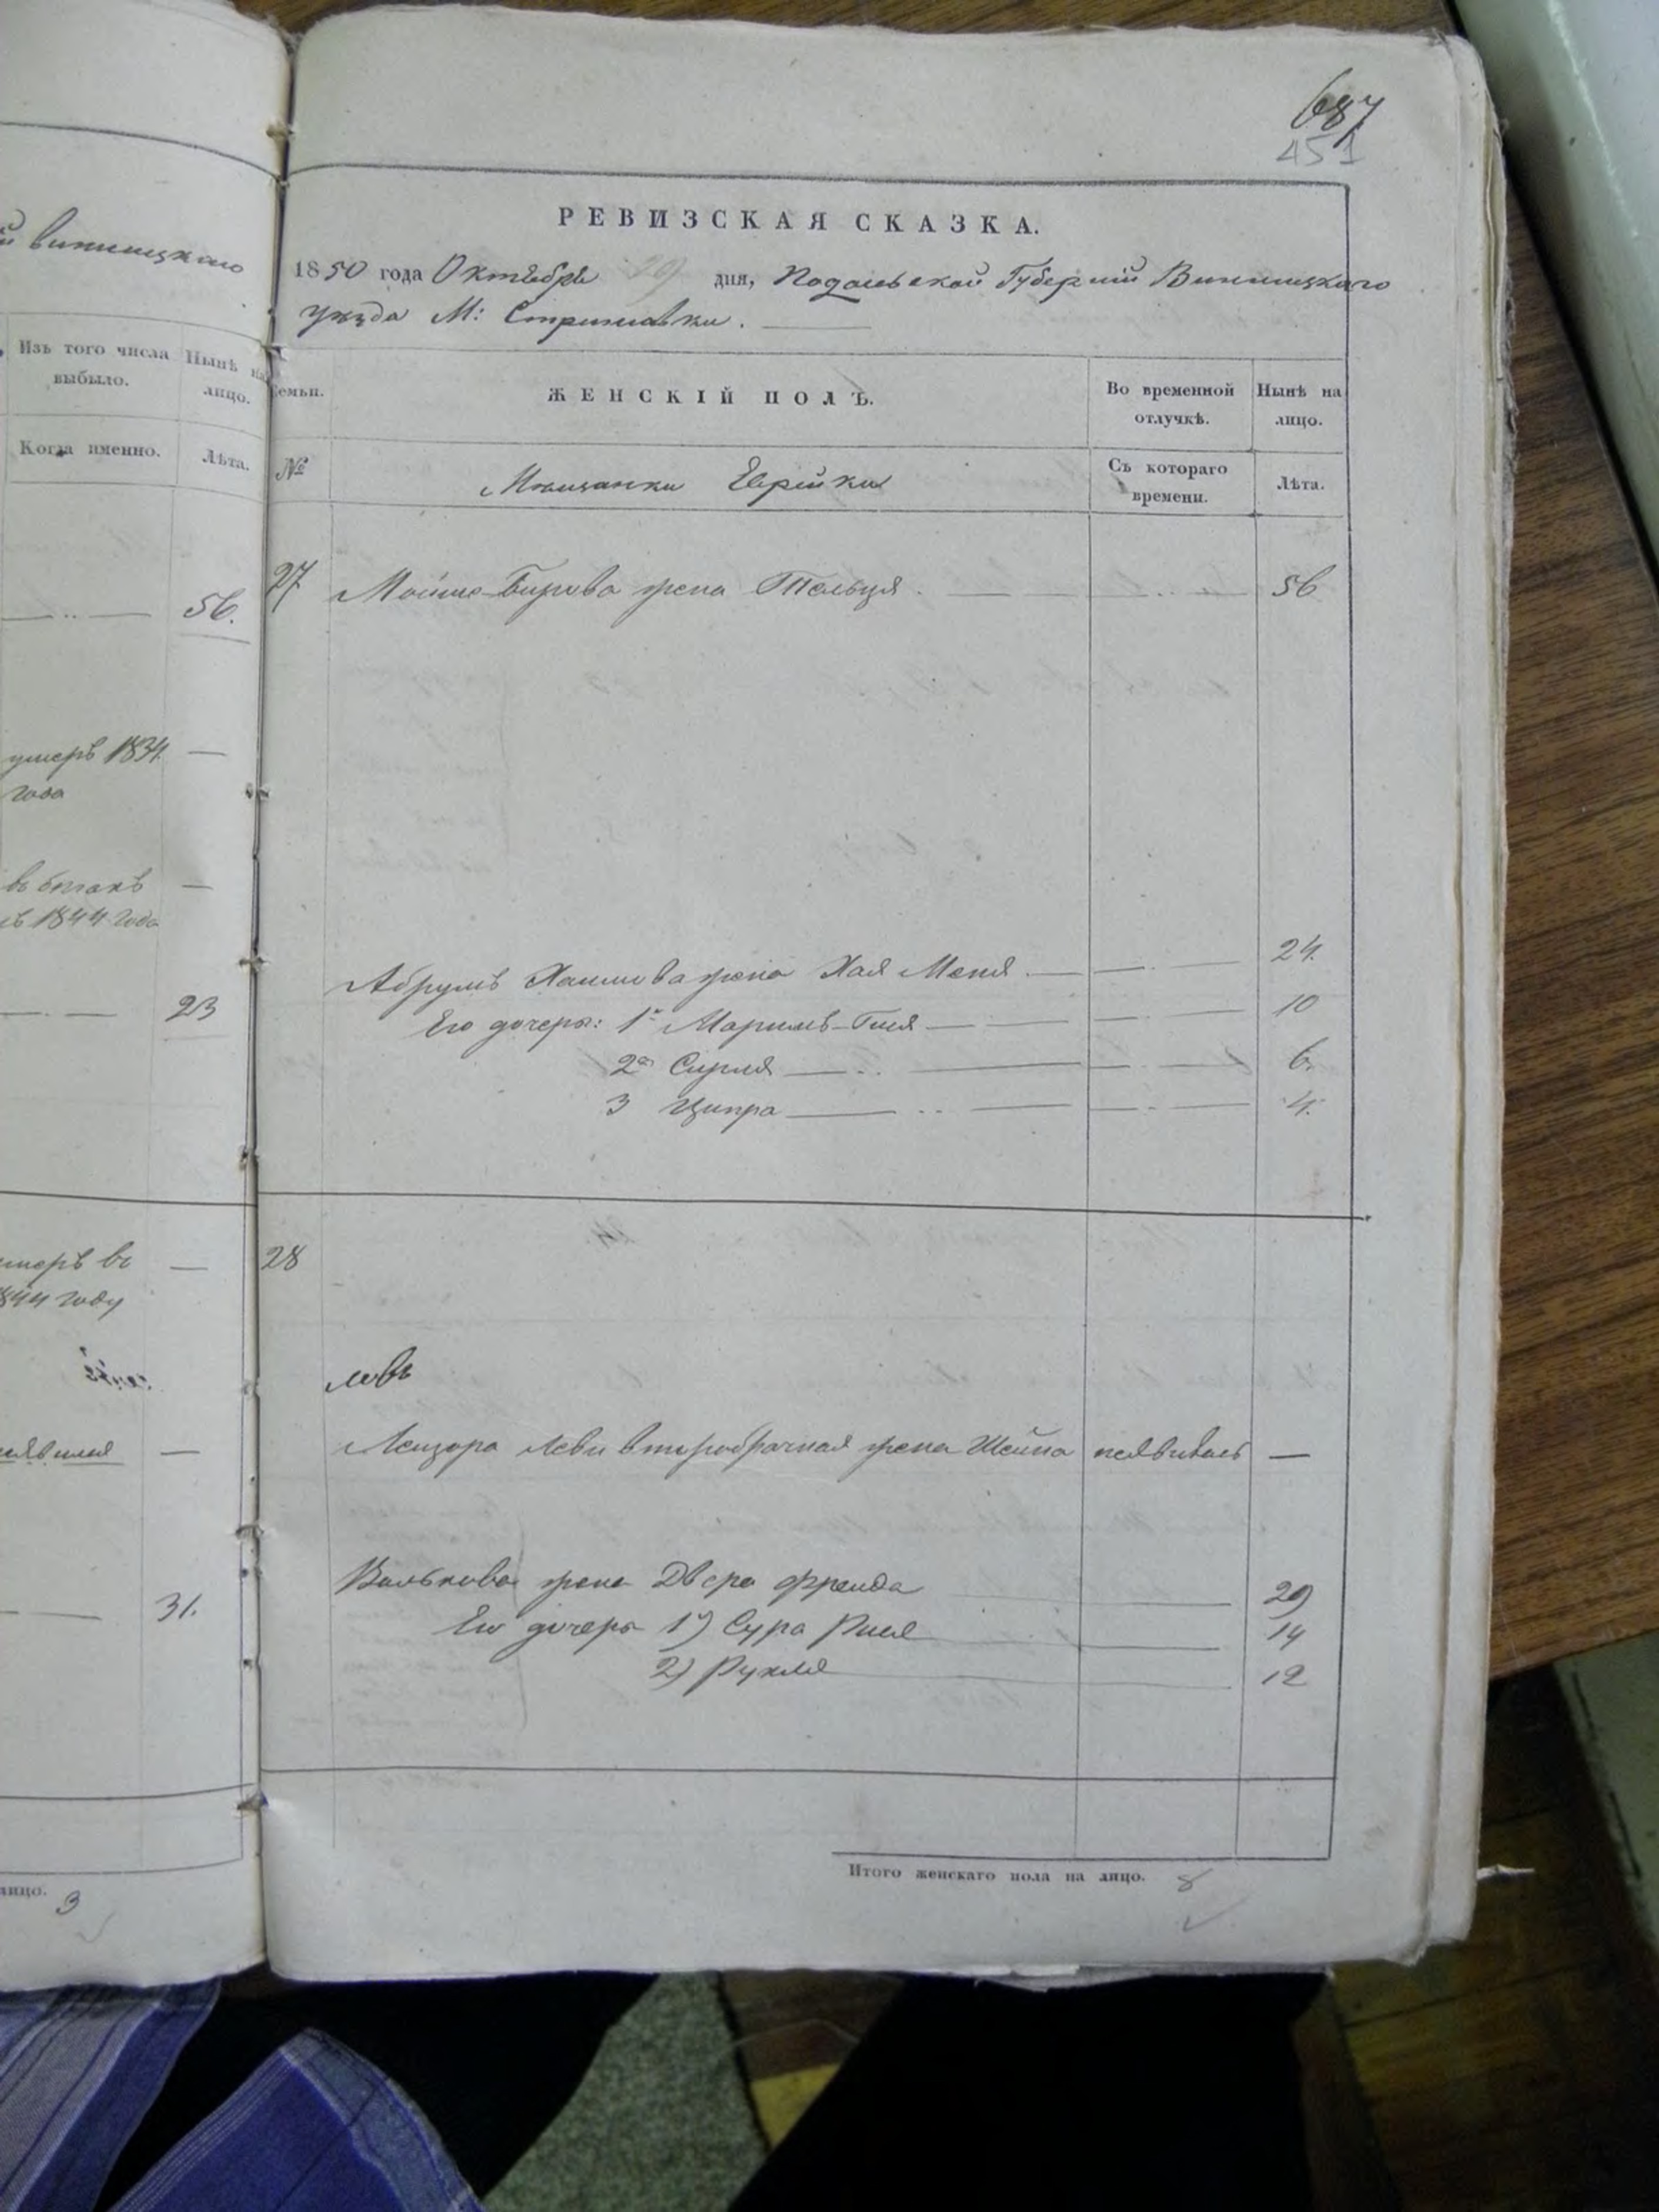 й винницкаго
Изъ того числа выбыло.
Нынѣ на лицо.
Когда именно.
Лѣта.
56.
умеръ 1834
года
—
1844 года
23
умеръ въ
1844 году
31.
лицо. 3
687
451
РЕВИЗСКАЯ СКАЗКА.
1850 года Октября 29 дня, Подольской Губерніи Винницкаго
уѣзда М: Стрижавки.
Семьи.
ЖЕНСКІЙ ПОЛЪ.
Во временной отлучкѣ.
Нынѣ на лицо.
№
Мѣщанки Еврейки
Съ котораго времени.
Лѣта.
27 Мошко Бирова жена Тельця. 56
Абрумъ Хаимова жена Хая Меня. 24.
Его дочеры: 1я Маримъ-Гитя 10
2я Сирля 6.
3 Ципра 4.
28
Лейзора Леви второбрачная жена Шейна неявилась —
Волькова жена Двера Френда 29
Его дочери 1) Сура Рися 14
2) Рухля 12
Итого женскаго пола на лицо. 8